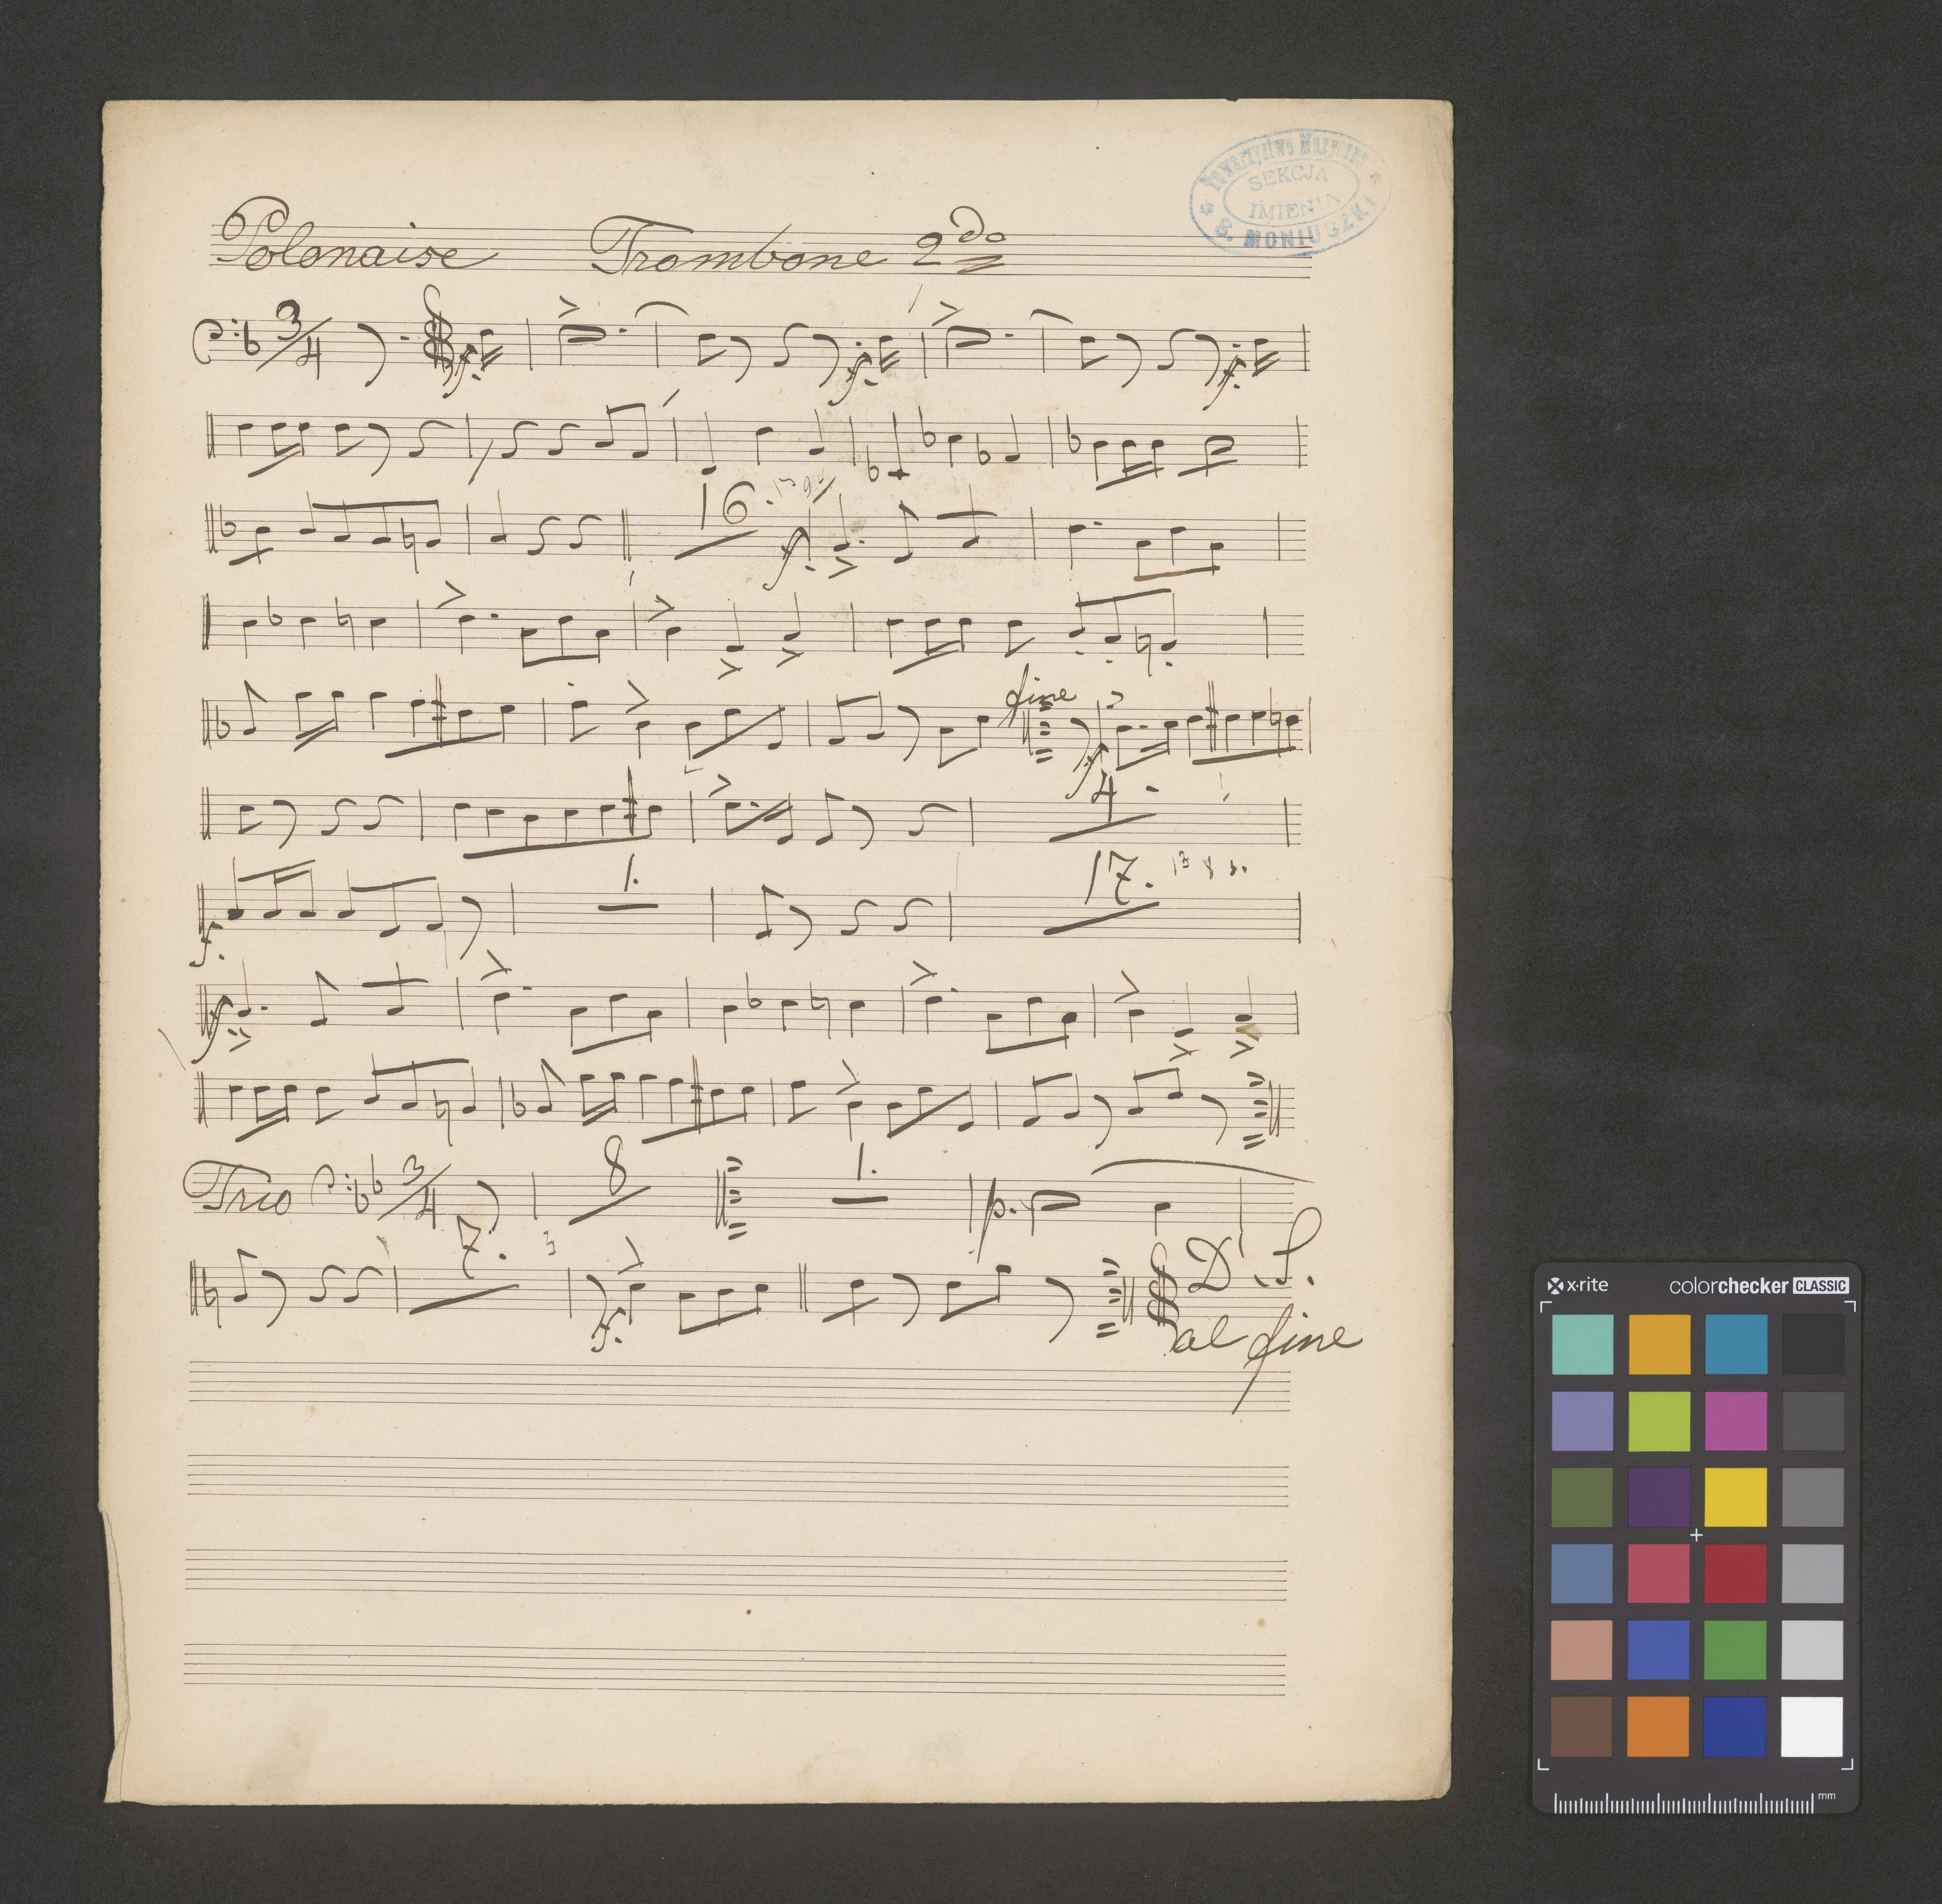 TOWARZYSTWO MUZYCZNE
SEKCJA
IMIENIA
S. MONIUSZKI
Polonaise Trombone 2do
3/4 f.
f. f.
16. f.
fine
f
4.
f. 1. 17.
f
Trio 3/4 8 1. p.
7. 3 f. D. S.
al fine
x-rite colorchecker CLASSIC
mm